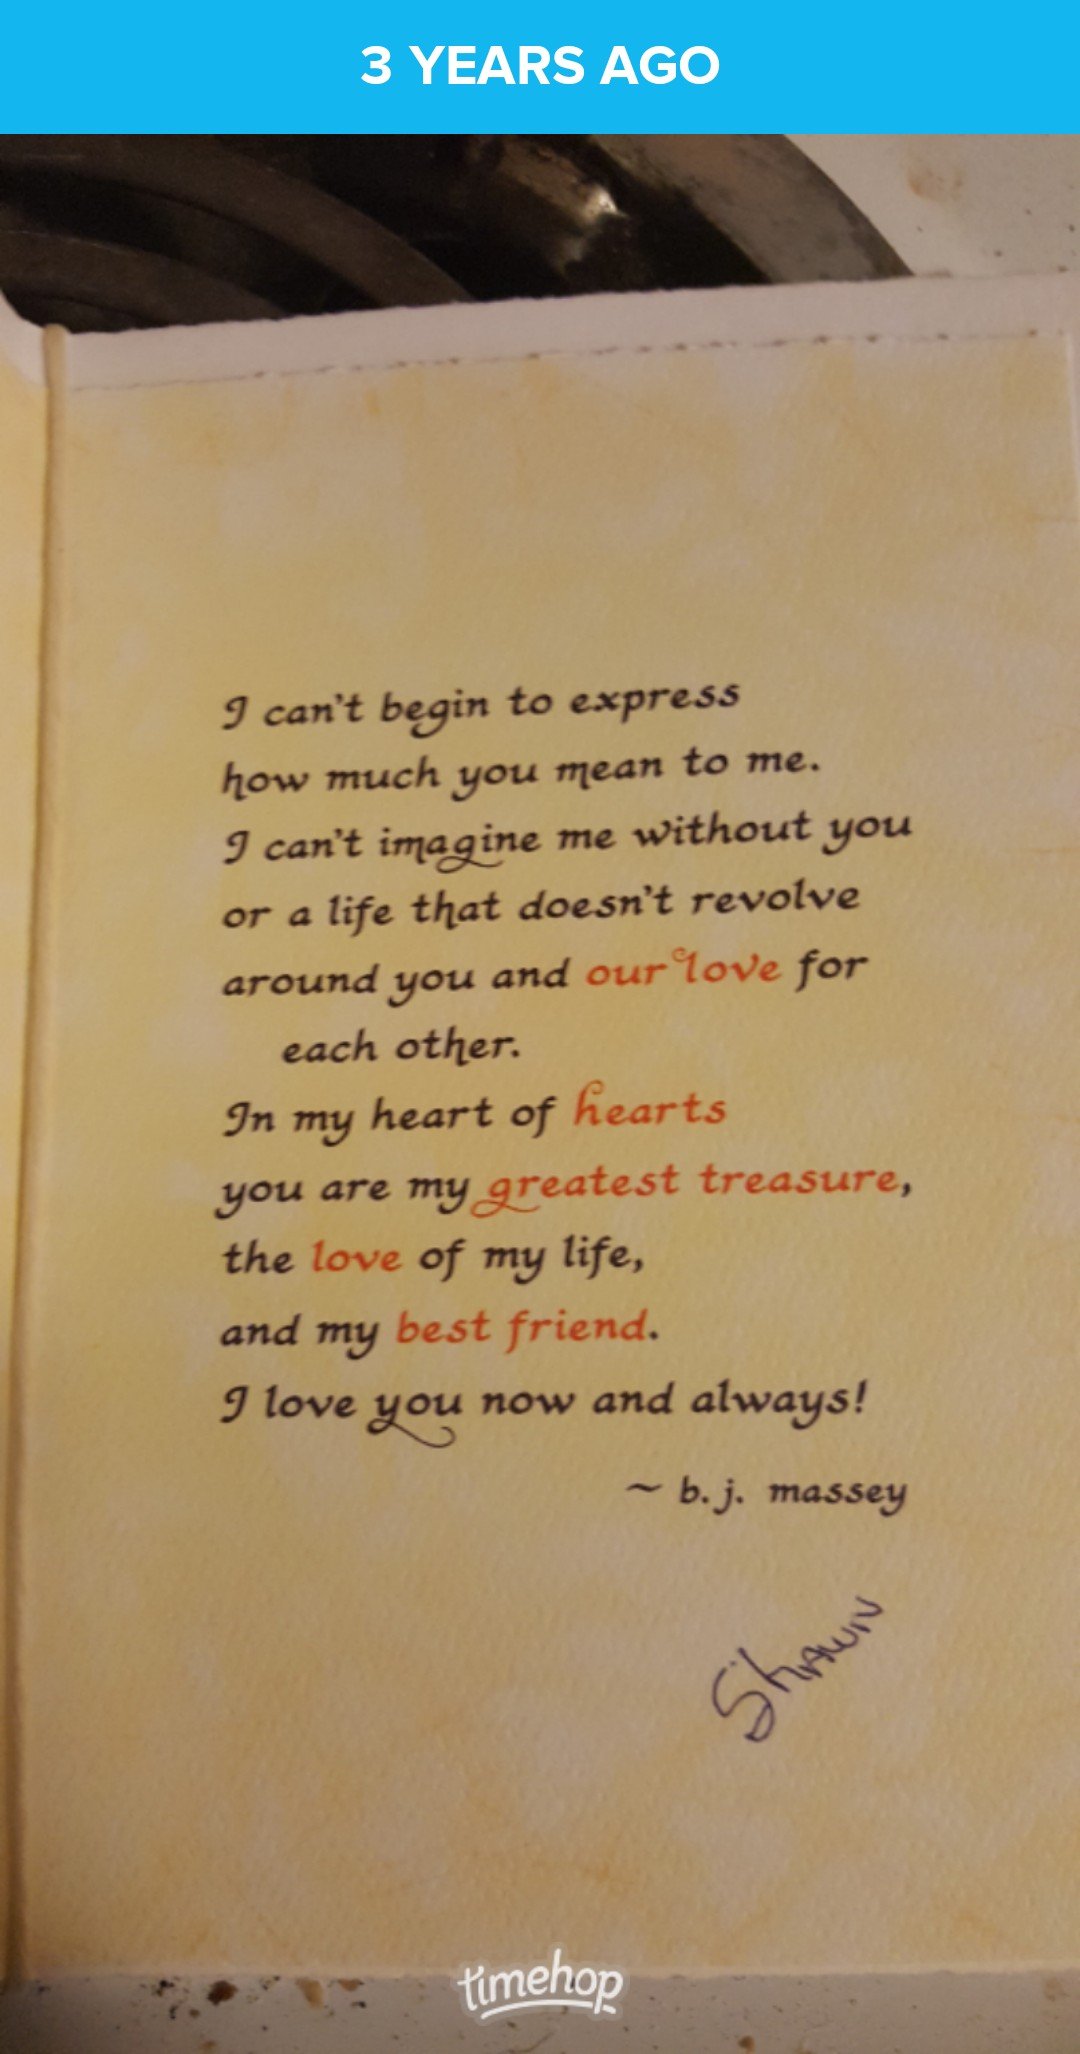 3 YEARS AGO
I can't begin to express
how much you mean to me.
I can't imagine me without you
or a life that doesn't revolve
around you and our love for
each other.
In my heart of hearts
you are my greatest treasure,
the love of my life,
and my best friend.
I love you now and always!
~ b. j. massey
Shawn
timehop